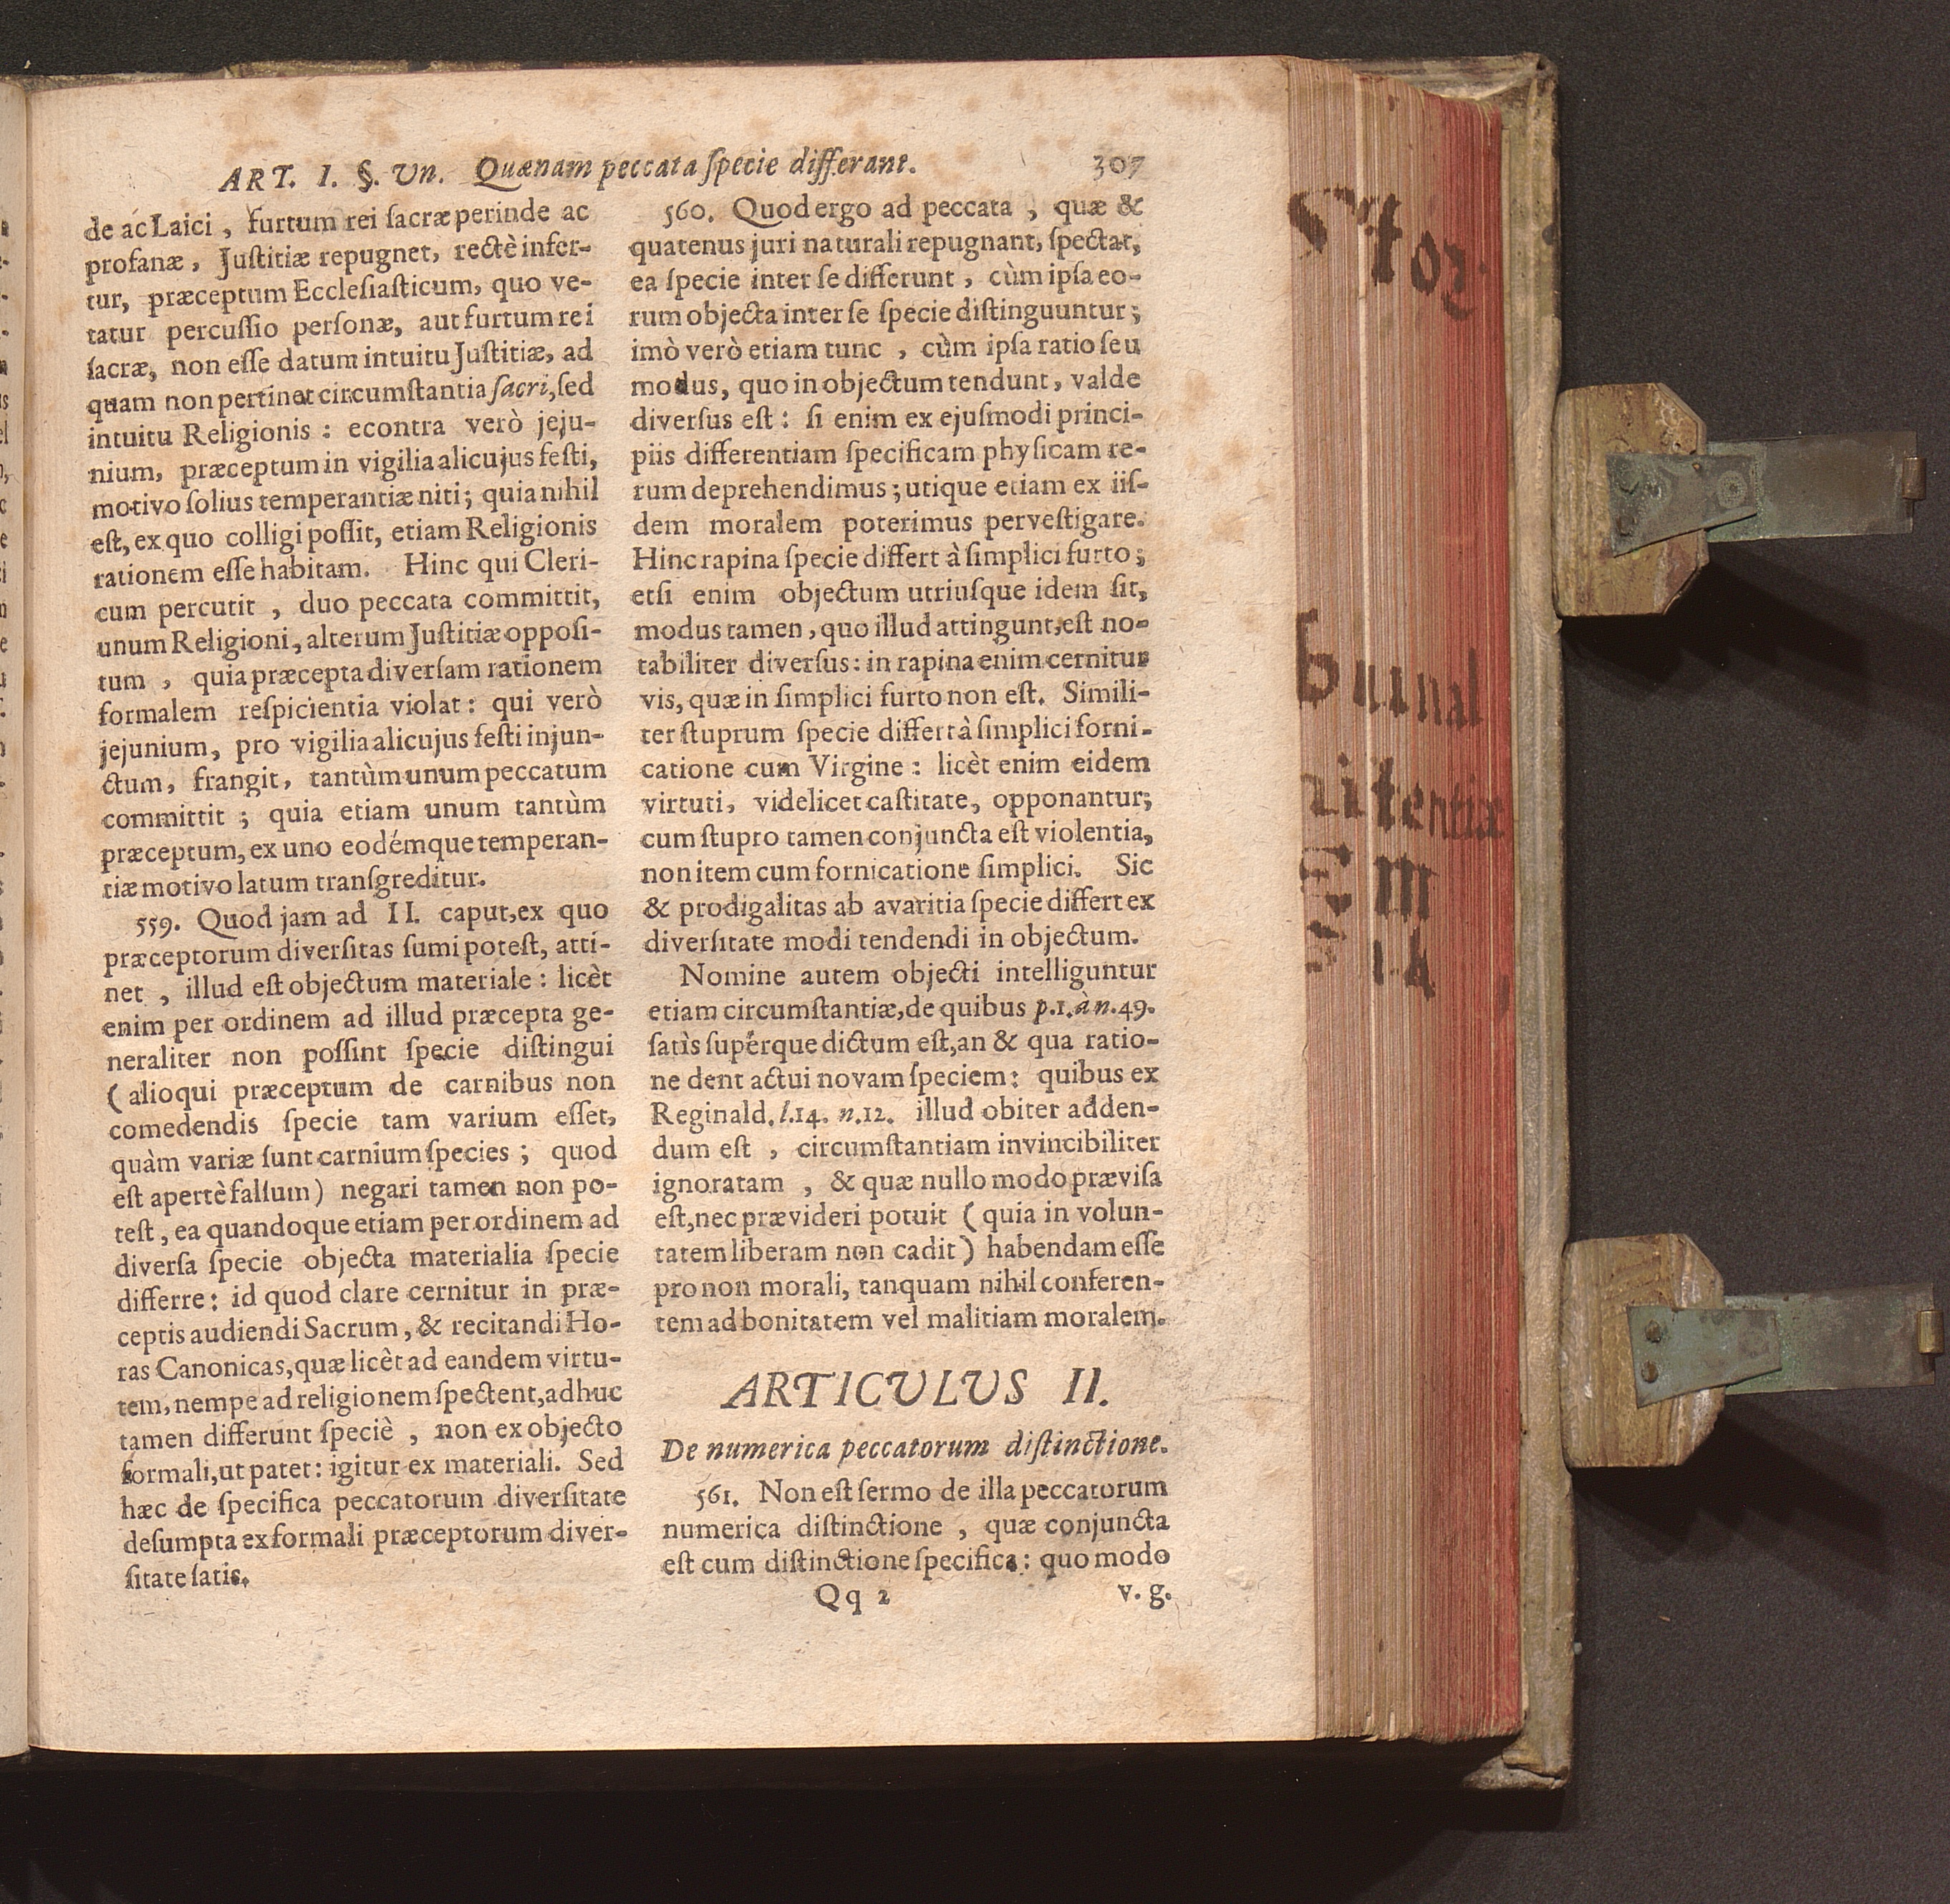 ART. I. §. Un. Quænam peccata ſpecie differant. 307
de ac Laici, furtum rei ſacræ perinde ac
profanæ, Juſtitiæ repugnet, rectè infer-
tur, præceptum Eccleſiaſticum, quo ve-
tatur percuſſio perſonæ, aut furtum rei
ſacræ, non eſſe datum intuitu Juſtitiæ, ad
quam non pertinet circumſtantia ſacri, ſed
intuitu Religionis: econtra verò jeju-
nium, præceptum in vigilia alicujus feſti,
motivo ſolius temperantiæ niti; quia nihil
eſt, ex quo colligi poſſit, etiam Religionis
rationem eſſe habitam. Hinc qui Cleri-
cum percutit, duo peccata committit,
unum Religioni, alterum Juſtitiæ oppoſi-
tum, quia præcepta diverſam rationem
formalem reſpicientia violat: qui verò
jejunium, pro vigilia alicujus feſti injun-
ctum, frangit, tantùm unum peccatum
committit; quia etiam unum tantùm
præceptum, ex uno eodémque temperan-
tiæ motivo latum tranſgreditur.
559. Quod jam ad II. caput, ex quo
præceptorum diverſitas ſumi poteſt, atti-
net, illud eſt objectum materiale: licèt
enim per ordinem ad illud præcepta ge-
neraliter non poſſint ſpecie diſtingui
(alioqui præceptum de carnibus non
comedendis ſpecie tam varium eſſet,
quàm variæ ſunt carnium ſpecies; quod
eſt apertè falſum) negari tamen non po-
teſt, ea quandoque etiam per ordinem ad
diverſa ſpecie objecta materialia ſpecie
differre: id quod clare cernitur in præ-
ceptis audiendi Sacrum, & recitandi Ho-
ras Canonicas, quæ licèt ad eandem virtu-
tem, nempe ad religionem ſpectent, adhuc
tamen differunt ſpeciè, non ex objecto
formali, ut patet: igitur ex materiali. Sed
hæc de ſpecifica peccatorum diverſitate
deſumpta ex formali præceptorum diver-
ſitate ſatis.
560. Quod ergo ad peccata, quæ &
quatenus juri naturali repugnant, ſpectat,
ea ſpecie inter ſe differunt, cùm ipſa eo-
rum objecta inter ſe ſpecie diſtinguuntur;
imò verò etiam tunc, cùm ipſa ratio ſeu
modus, quo in objectum tendunt, valde
diverſus eſt: ſi enim ex ejuſmodi princi-
piis differentiam ſpecificam phyſicam re-
rum deprehendimus; utique etiam ex iiſ-
dem moralem poterimus perveſtigare.
Hinc rapina ſpecie differt à ſimplici furto;
etſi enim objectum utriuſque idem ſit,
modus tamen, quo illud attingunt, eſt no-
tabiliter diverſus: in rapina enim cernitur
vis, quæ in ſimplici furto non eſt. Simili-
ter ſtuprum ſpecie differt à ſimplici forni-
catione cum Virgine: licèt enim eidem
virtuti, videlicet caſtitate, opponantur;
cum ſtupro tamen conjuncta eſt violentia,
non item cum fornicatione ſimplici. Sic
& prodigalitas ab avaritia ſpecie differt ex
diverſitate modi tendendi in objectum.
Nomine autem objecti intelliguntur
etiam circumſtantiæ, de quibus p.1. à n.49.
ſatìs ſupérque dictum eſt, an & qua ratio-
ne dent actui novam ſpeciem: quibus ex
Reginald. l.14. n.12. illud obiter adden-
dum eſt, circumſtantiam invincibiliter
ignoratam, & quæ nullo modo præviſa
eſt, nec prævideri potuit (quia in volun-
tatem liberam non cadit) habendam eſſe
pro non morali, tanquam nihil conferen-
tem ad bonitatem vel malitiam moralem.
ARTICULUS II.
De numerica peccatorum diſtinctione.
561. Non eſt ſermo de illa peccatorum
numerica diſtinctione, quæ conjuncta
eſt cum diſtinctione ſpecifica: quo modo
Qq 2 v. g.